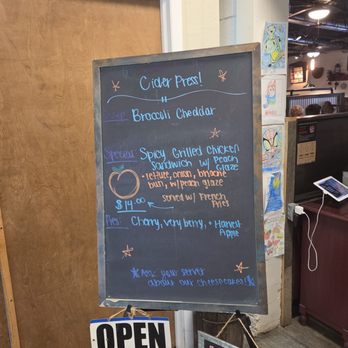 Cider Press!
Soup: Broccoli Cheddar
Special: Spicy Grilled Chicken
Sandwich w/ Peach
Glaze
• lettuce, onion, brioche
bun, w/ peach glaze
$14.00
served w/ French
Fries
Pies: Cherry, very berry, + Harvest
Apple
Ask your server
about our cheesecakes!
OPEN